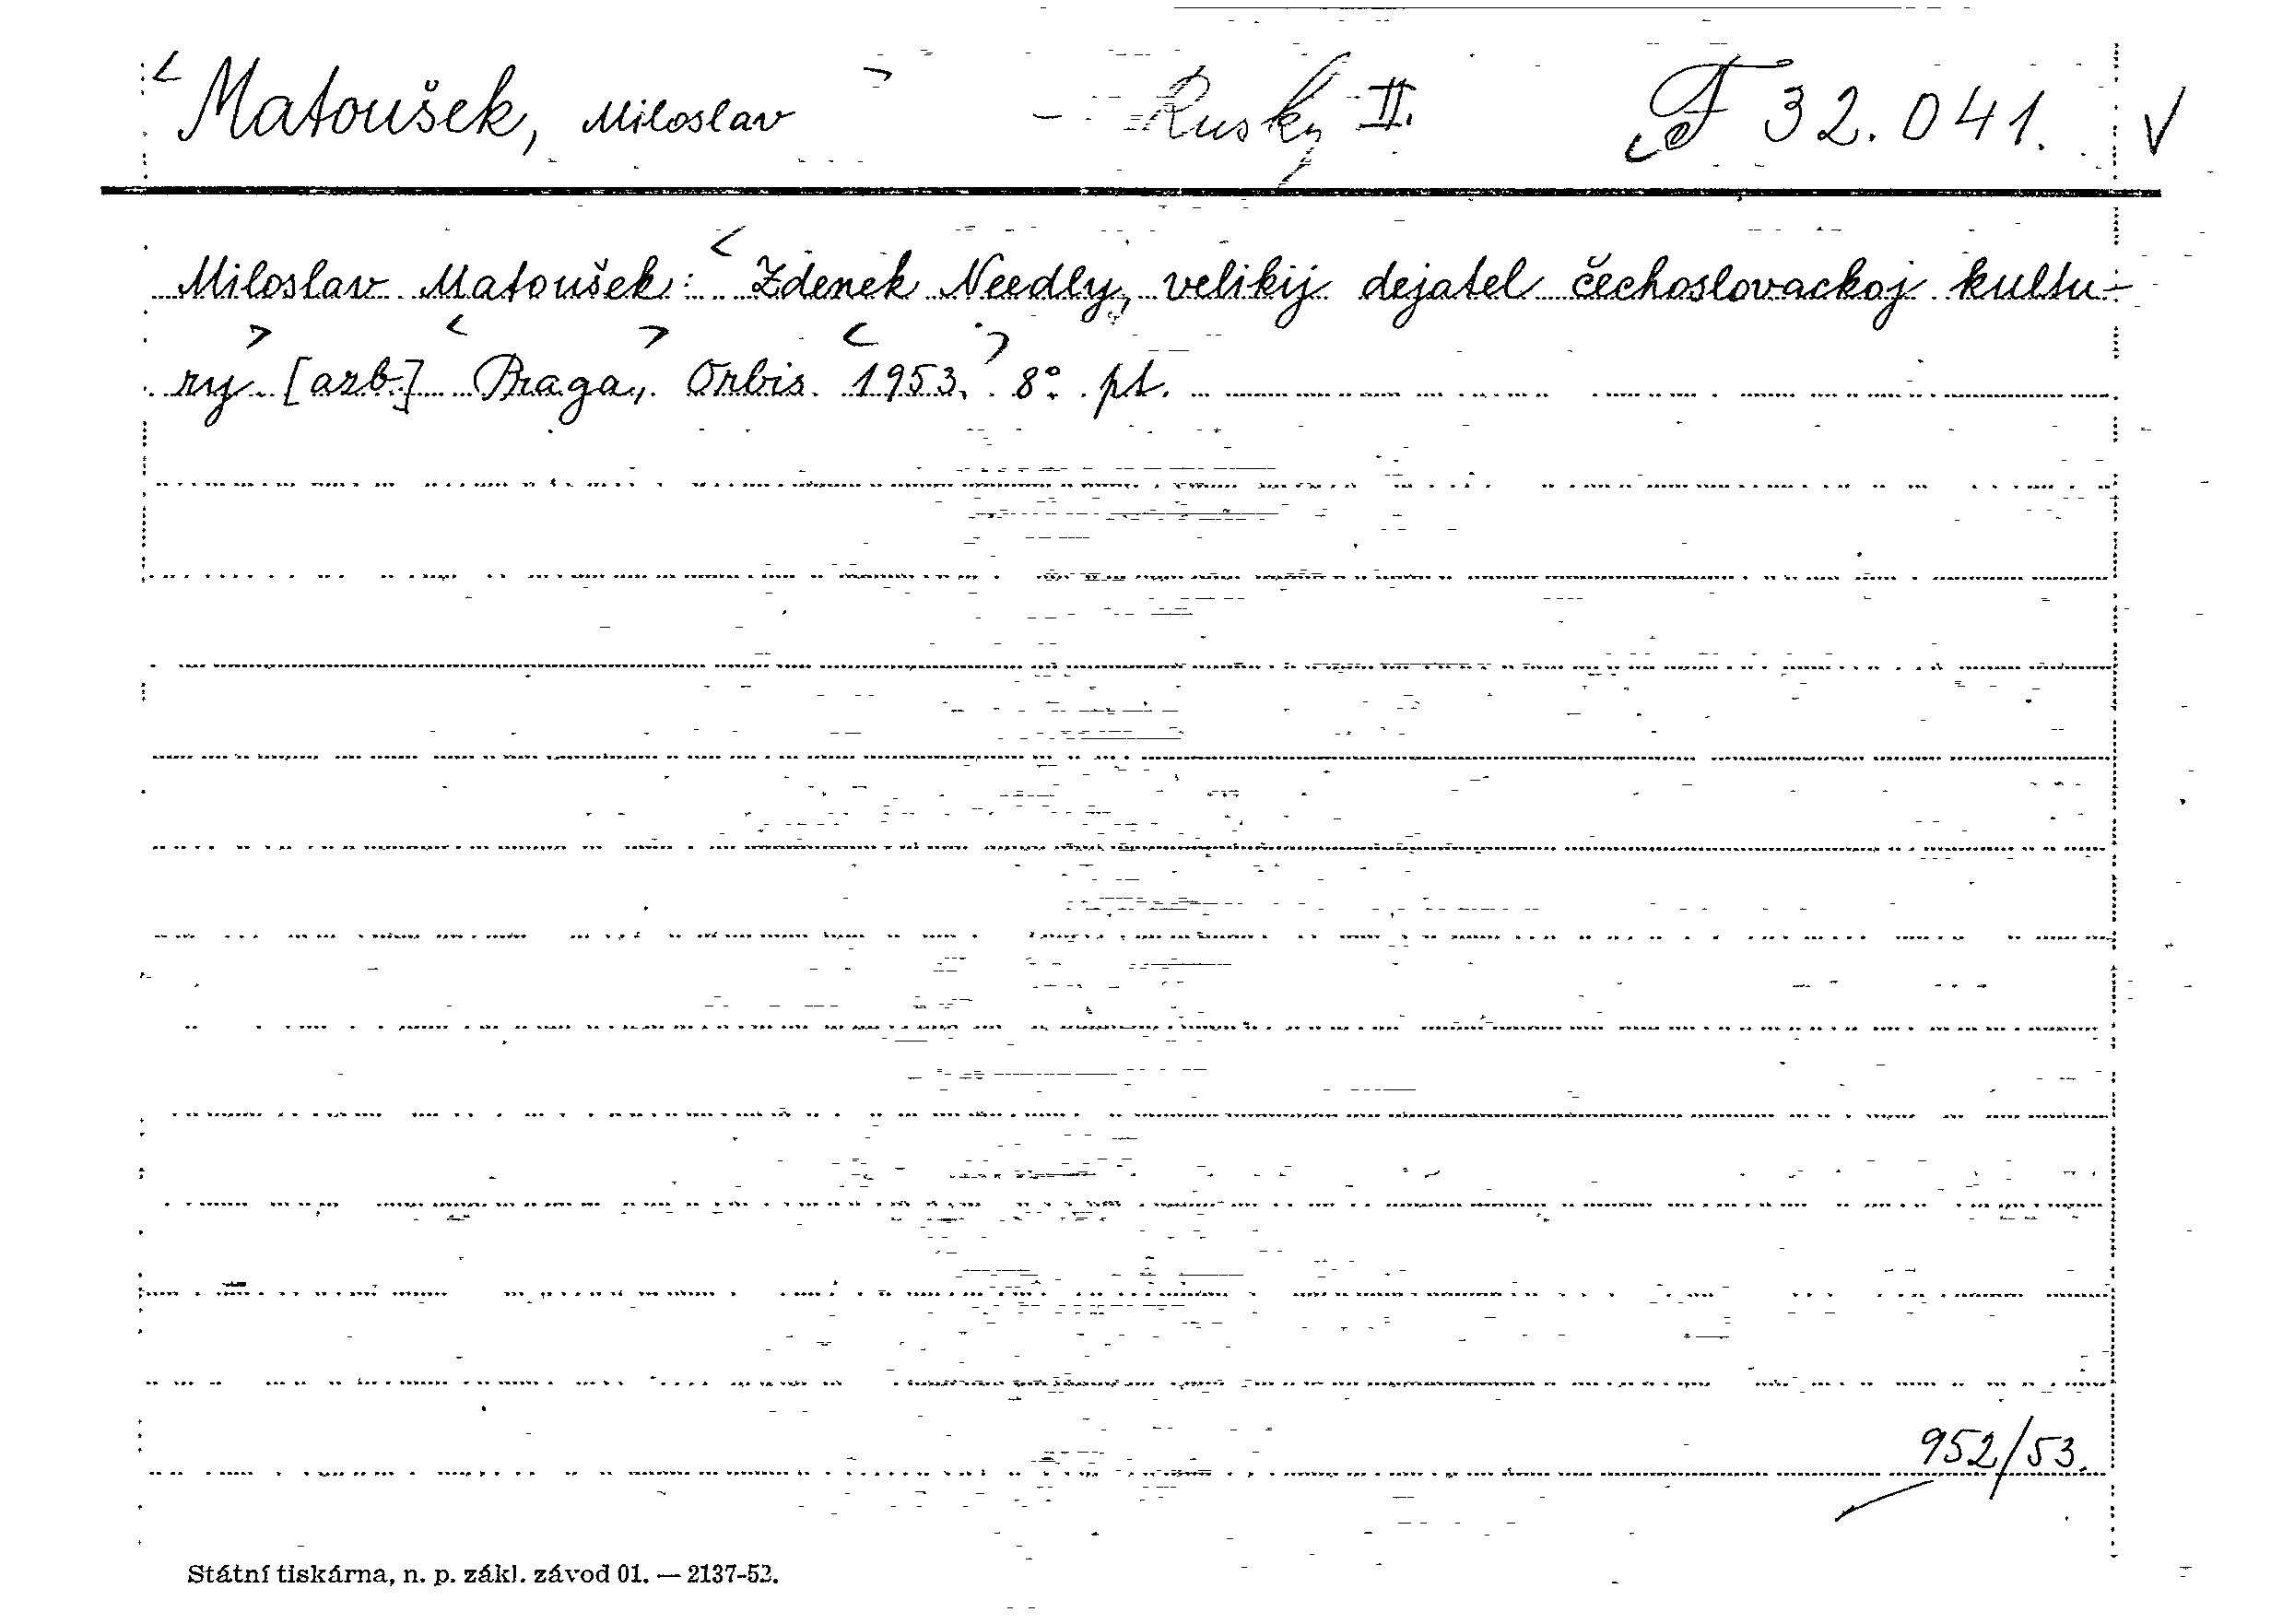 Matoušek, Miloslav - Rusky II. F 32.041. V
Miloslav Matoušek: Zdenek Needly, velikij dejatel čechoslovackoj kultu-
ry. [azb.] Praga, Orbis. 1953. 8° pt.
952/53.
Státní tiskárna, n. p. zákl. závod 01. — 2137-52.